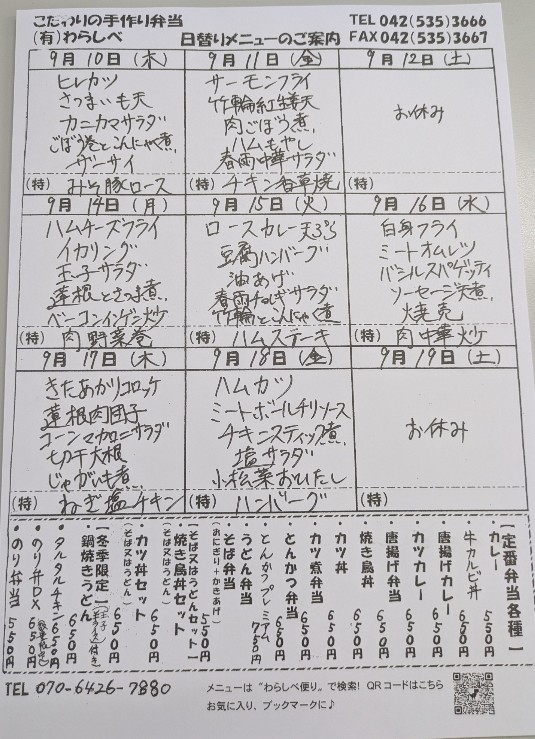 こだわりの手作り弁当
(有)わらしべ
日替りメニューのご案内
TEL 042(535)3666
FAX 042(535)3667
9月10日(木)
ヒレカツ
さつまいも天
カニカマサラダ
ごぼう巻とこんにゃく煮
ザーサイ
(特) みそ豚ロース
9月11日(金)
サーモンフライ
竹輪紅生姜天
肉ごぼう煮
ハムもやし
春雨中華サラダ
(特) チキン香草焼
9月12日(土)
お休み
(特)
9月14日(月)
ハムチーズフライ
イカリング
玉子サラダ
蓮根とさつま煮
ベーコンインゲン炒
(特) 肉野菜巻
9月15日(火)
ロースカレー天ぷら
豆腐ハンバーグ
油あげ
春雨ねぎサラダ
竹輪とこんにゃく煮
(特) ハムステーキ
9月16日(水)
白身フライ
ミートオムレツ
バジルスパゲッティ
ソーセージ天煮
焼売
(特) 肉中華炒
9月17日(木)
きたあかりコロッケ
蓮根肉団子
コーンマカロニサラダ
切干大根
じゃがいも煮
(特) ねぎ塩チキン
9月18日(金)
ハムカツ
ミートボールチリソース
チキンスティック煮
塩サラダ
小松菜おひたし
(特) ハンバーグ
9月19日(土)
お休み
(特)
【定番弁当各種】
・カレー 550円
・牛カルビ丼 650円
・唐揚げカレー 650円
・カツカレー 650円
・唐揚げ弁当 650円
・焼き鳥丼 650円
・カツ丼 650円
・カツ煮弁当 650円
・とんかつ弁当 650円
・とんかつプレミアム 750円
・うどん弁当
・そば弁当
(おにぎり+かきあげ) 550円
【そば又はうどんセット】
・焼き鳥丼セット
(そば又はうどん) 650円
・カツ丼セット
(そば又はうどん) 650円
【冬季限定】
・鍋焼きうどん 650円
・タルタルチキン 650円
・のり弁DX 650円
・のり弁当 550円
TEL 070-6426-7880
メニューは“わらしべ便り”で検索! QRコードはこちら
お気に入り、ブックマークに♪